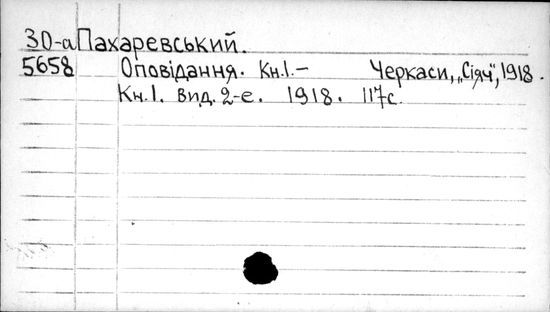 30-а Пахаревський.
5658 Оповідання. Кн.1.— Черкаси, „Сіяч", 1918.
Кн.1. Вид. 2-е. 1918. 117с.